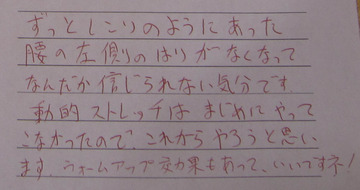 ずっとしこりのようにあった
腰の左側りのはりがなくなって
なんだか信じられない気分です.
動的ストレッチは まじめに やって
こなかったので、これから やろうと思い
ます. ウォームアップ効果もあって、いいですネ!